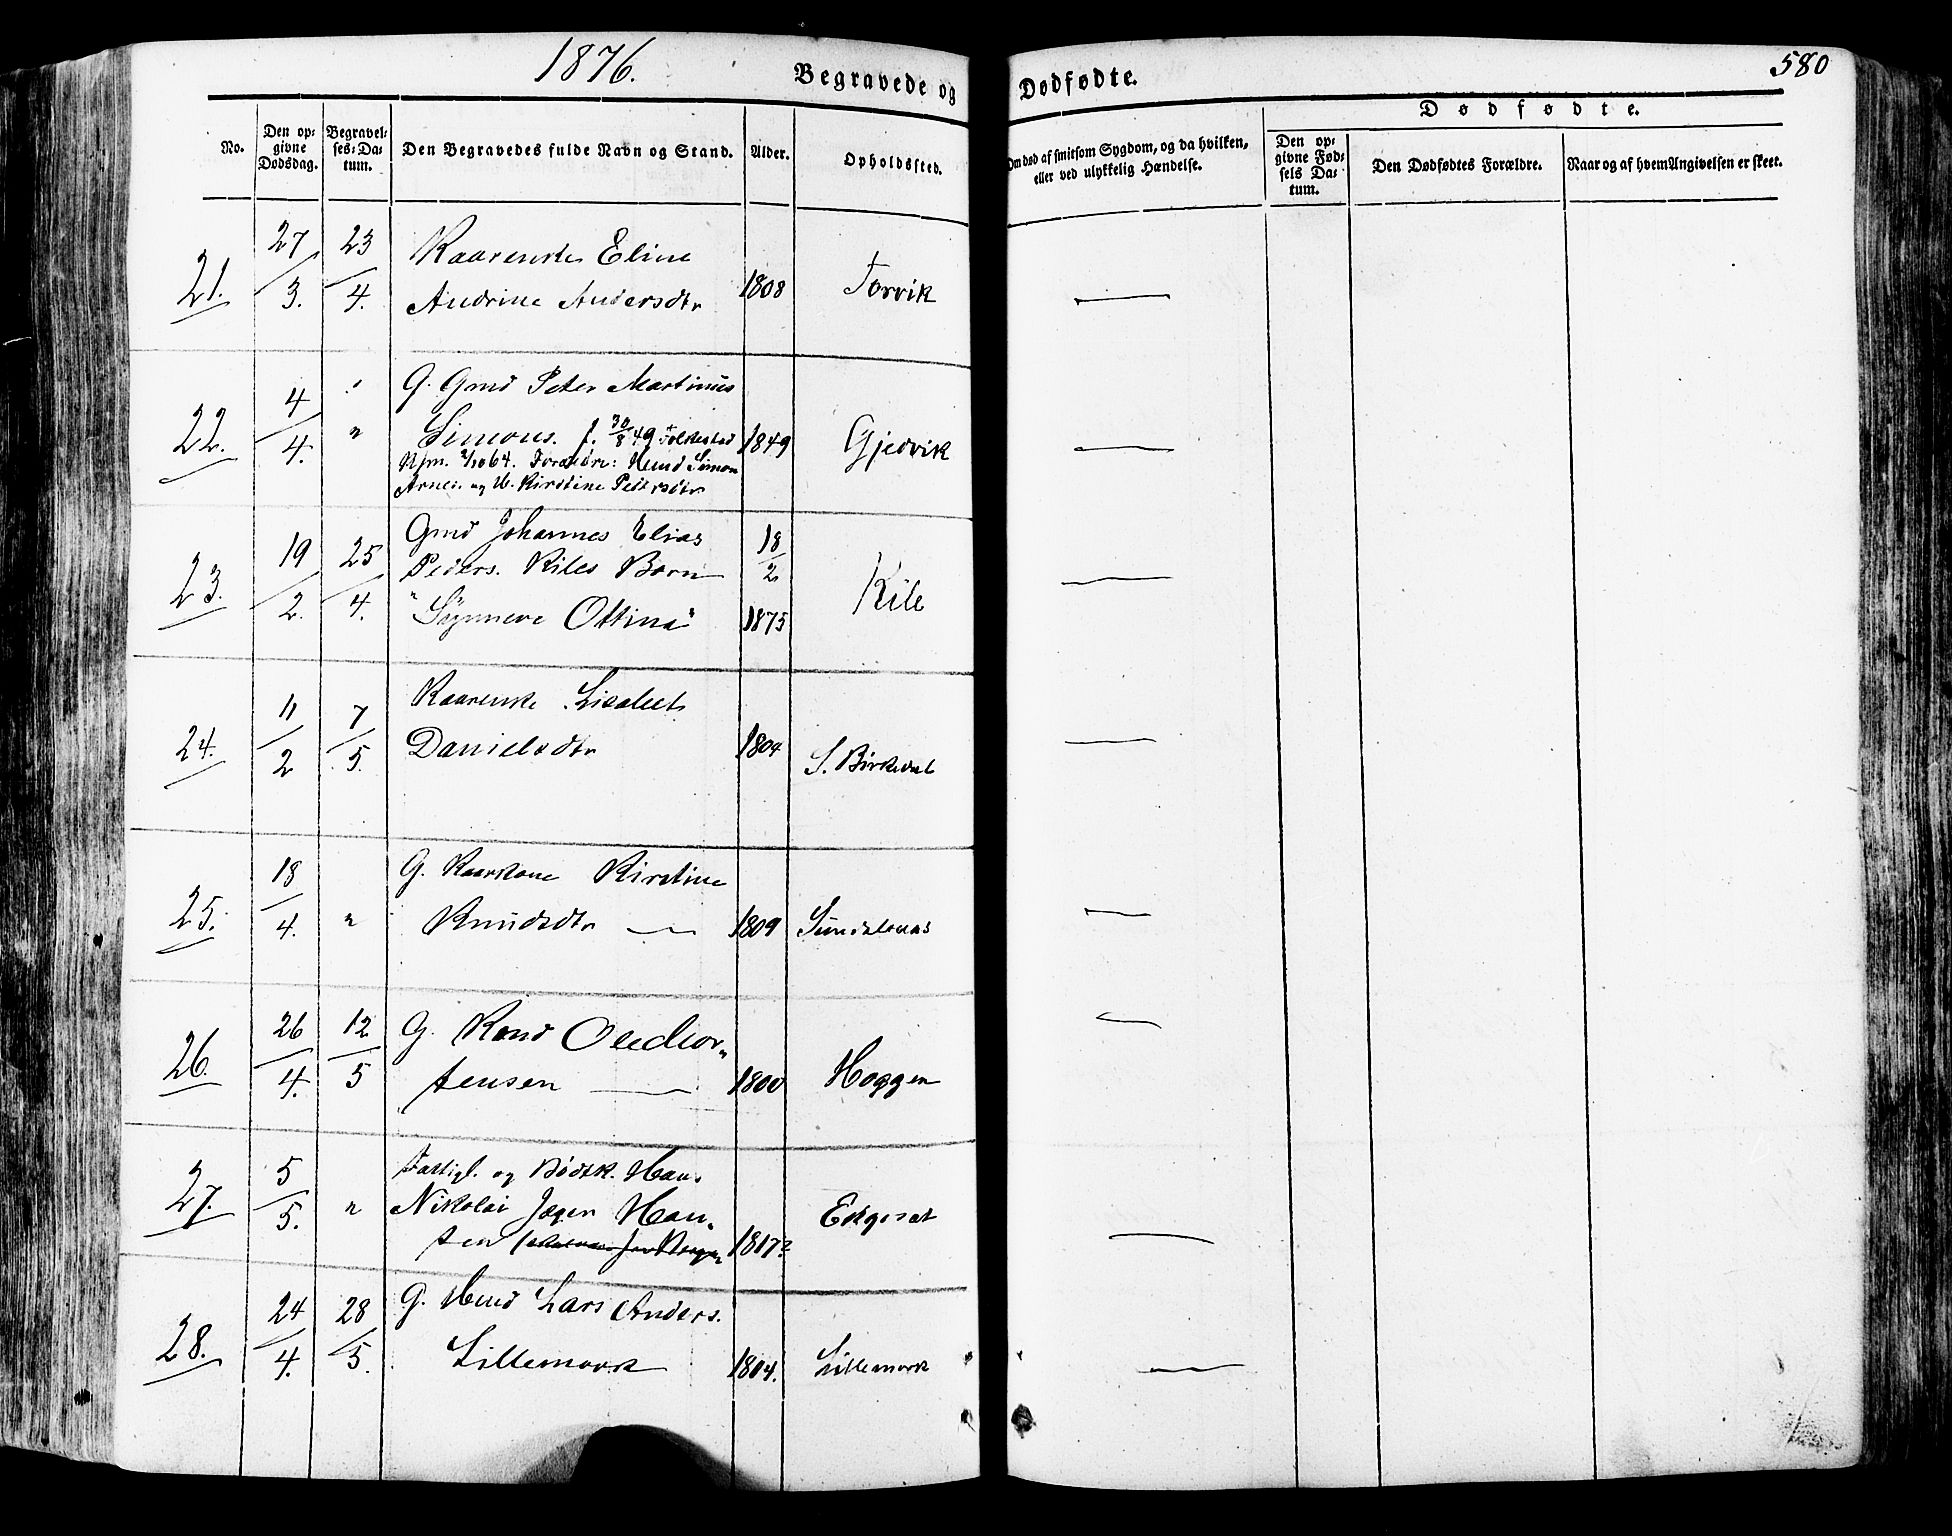 1876.
Begravede og Dødfødte.
580
Dødfødte.
No.
Den opgivne Dødsdag.
Begravelses-Datum.
Den Begravedes fulde Navn og Stand.
Alder.
Opholdssted.
Om død af smitsom Sygdom, og da hvilken,
eller ved ulykkelig Hændelse.
Den opgivne Fødsels Datum.
Den Dødfødtes Forældre.
Naar og af hvem Angivelsen er skeet.
21. 27/3. 23/4. Kaarenke Eline
Andrine Andersdtr 1808 Torvik
22. 4/4. " G. Gmd Peter Martinus
Simons. f. 30/8 49 Folkestad 1849 Gjedvik
Kfm. 2/10 64. Forældre: Huusd Simon
Arnes. og H. Kirstine Pedersdtr
23. 19/2. 25/4. Gmd Johannes Elias
Peders. Kiles Barn 18/2
"Synneve Ottine" 1875 Kile
24. 11/2 7/5. Kaarenke Lisabet
Danielsdtr 1804 S. Birkedal
25. 18/4. " G. Kaarkone Kirstine
Knudsdtr — 1809
26. 26/4. 12/5 G. Kaard
tensen — 1800 Haggen
27. 5/5. " Fattigl. og Bødk. Hans
Nikolai Jæger Han-
sen 1817? Ekgeset
28. 24/4. 28/5. G. Huusd Lars Anders.
Lillemork 1804. Lillemork